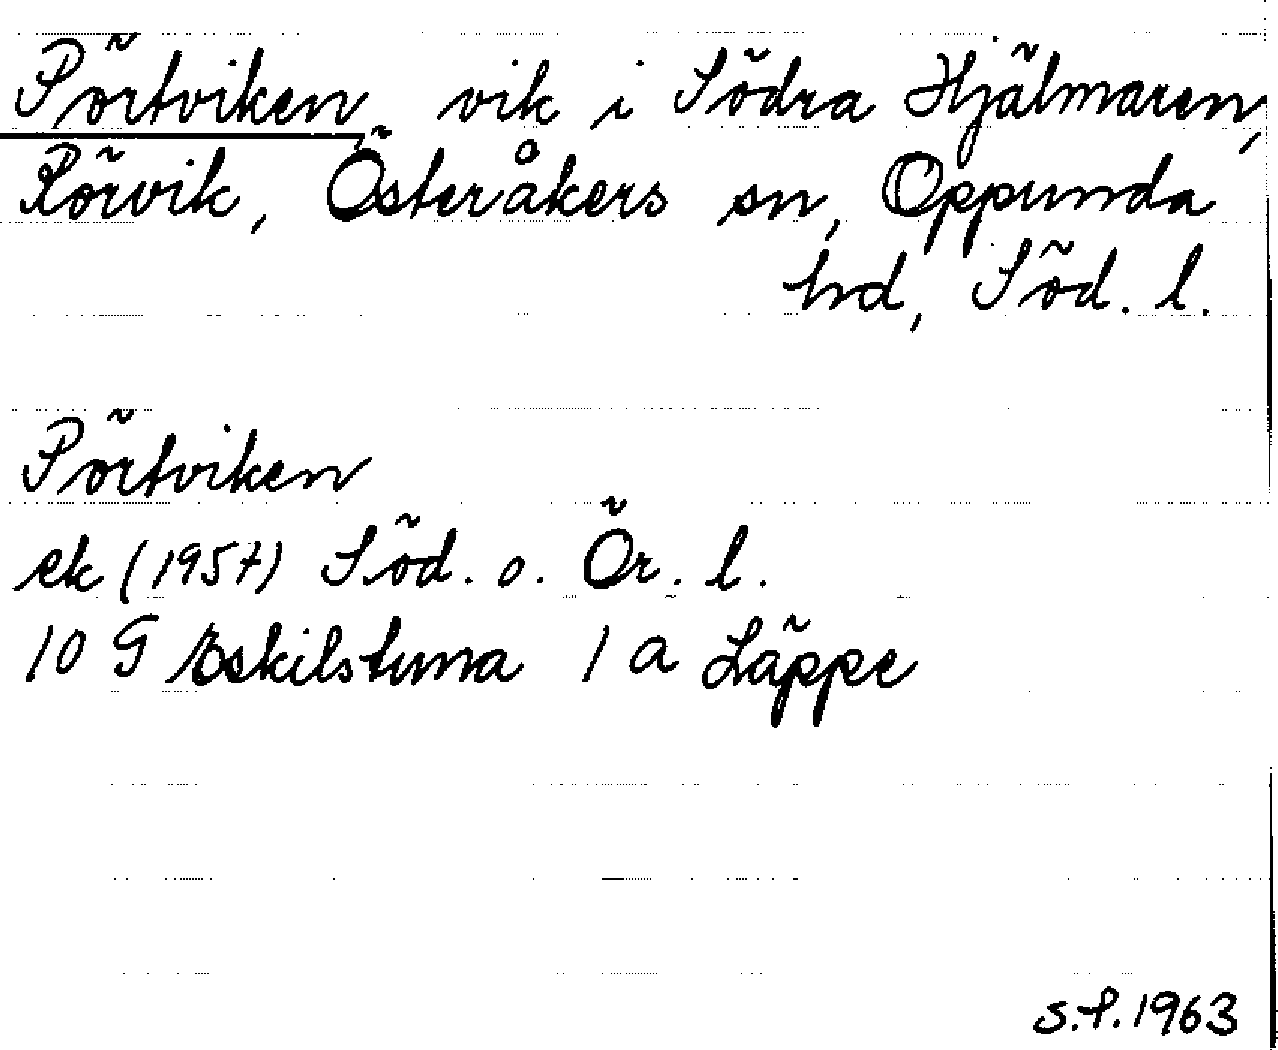 Pörtviken, vik i Södra Hjälmaren,
Rörvik, Österåkers sn, Oppunda
hd, Söd. l.
Pörtviken
ek (1957) Söd. o. Ör. l.
10 G Eskilstuna 1 a Läppe
S.F. 1963